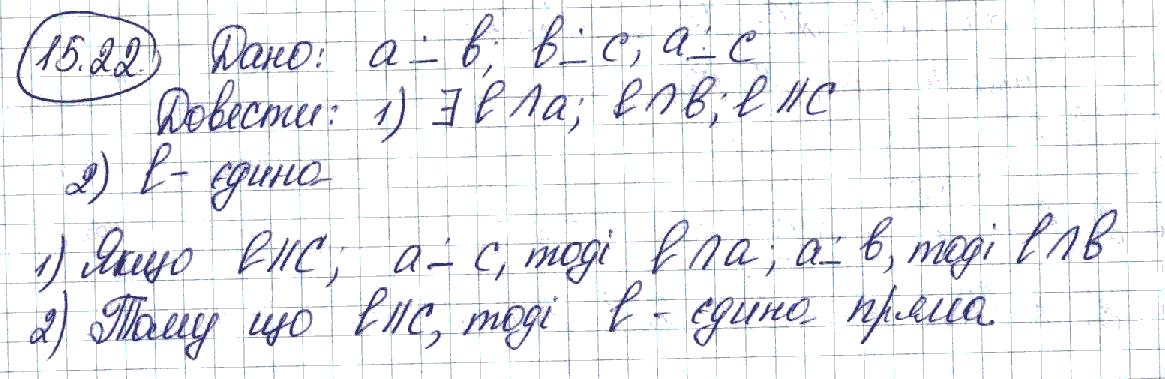 15.22. Дано: a ∸ b; b ∸ c; a ∸ c
Довести: 1) ∃ l ∩ a; l ∩ b; l || c
2) l - єдина
1) Якщо l || c; a ∸ c, тоді l ∩ a; a ∸ b, тоді l ∩ b
2) Тому що l || c, тоді l - єдина пряма.